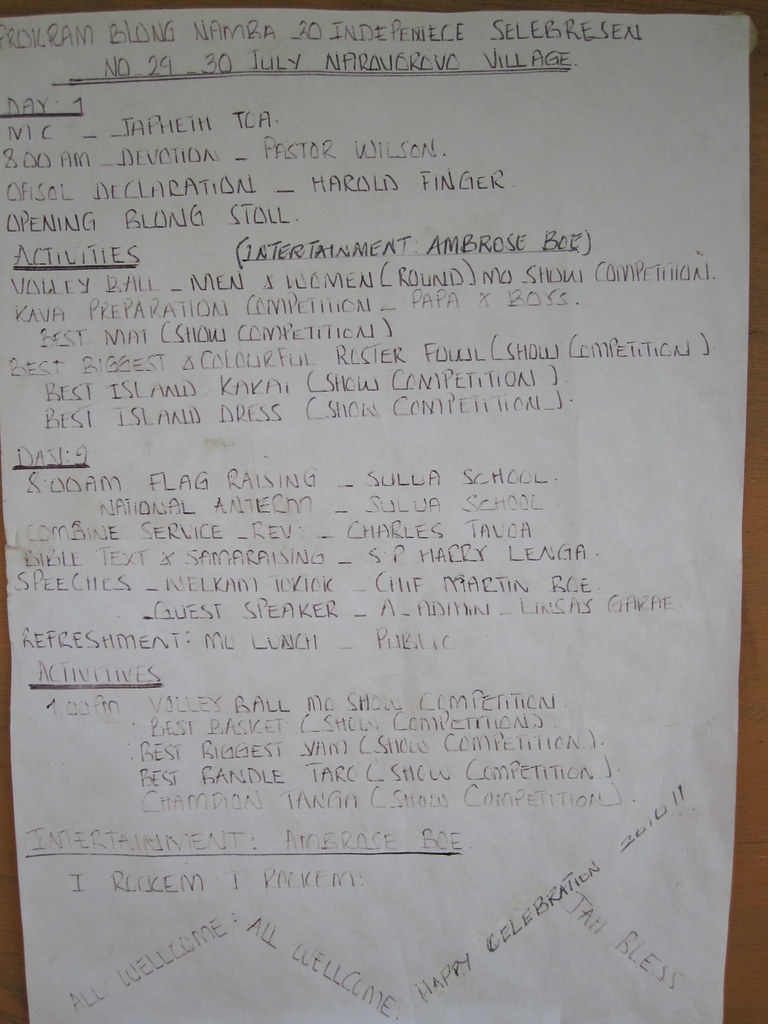 PROKRAM BLONG NAMBA 30 INDEPENIECE SELEBRESEN
NO 29 _ 30 JULY NAROVOROVO VILLAGE.
DAY: 1
MC _ JAPHETH TOA.
8.00 AM _ DEVOTION _ PASTOR WILSON.
OFISOL DECLARATION _ HAROLD FINGER
OPENING BLONG STOLL.
ACTIVITIES (INTERTAINMENT: AMBROSE BOE)
VOLLEY BALL _ MEN & WOMEN (ROUND) MO SHOW COMPETITION.
KAVA PREPARATION COMPETITION _ PAPA & BOYS.
BEST MAT (SHOW COMPETITION)
BEST BIGGEST & COLOURFUL ROSTER FOWL (SHOW COMPETITION)
BEST ISLAND KAKAI (SHOW COMPETITION).
BEST ISLAND DRESS (SHOW COMPETITION).
DAY: 2
8:00AM FLAG RAISING _ SULUA SCHOOL.
NATIONAL ANTEM _ SULUA SCHOOL
COMBINE SERVICE _ REV: _ CHARLES TAVOA
BIBLE TEXT & SAMARAISING _ S.P HARRY LENGA.
SPEECHES _ WELKAM TOKTOK _ CHIF MARTIN BOE.
_ GUEST SPEAKER _ A_ADMIN _ LINSAY GARAE
REFRESHMENT: MO LUNCH _ PUBLIC
ACTIVITIVES
1.00PM VOLLEY BALL MO SHOW COMPETITION
: BEST BASKET (SHOW COMPETITION)
: BEST BIGGEST YAM (SHOW COMPETITION).
BEST BANDLE TARO (SHOW COMPETITION).
CHAMPION TANGA (SHOW COMPETITION).
INTERTAINMENT: AMBROSE BOE
I ROCKEM I ROCKEM:
ALL WELLCOME: ALL WELLCOME:
HAPPY CELEBRATION 2010!!
JAH BLESS